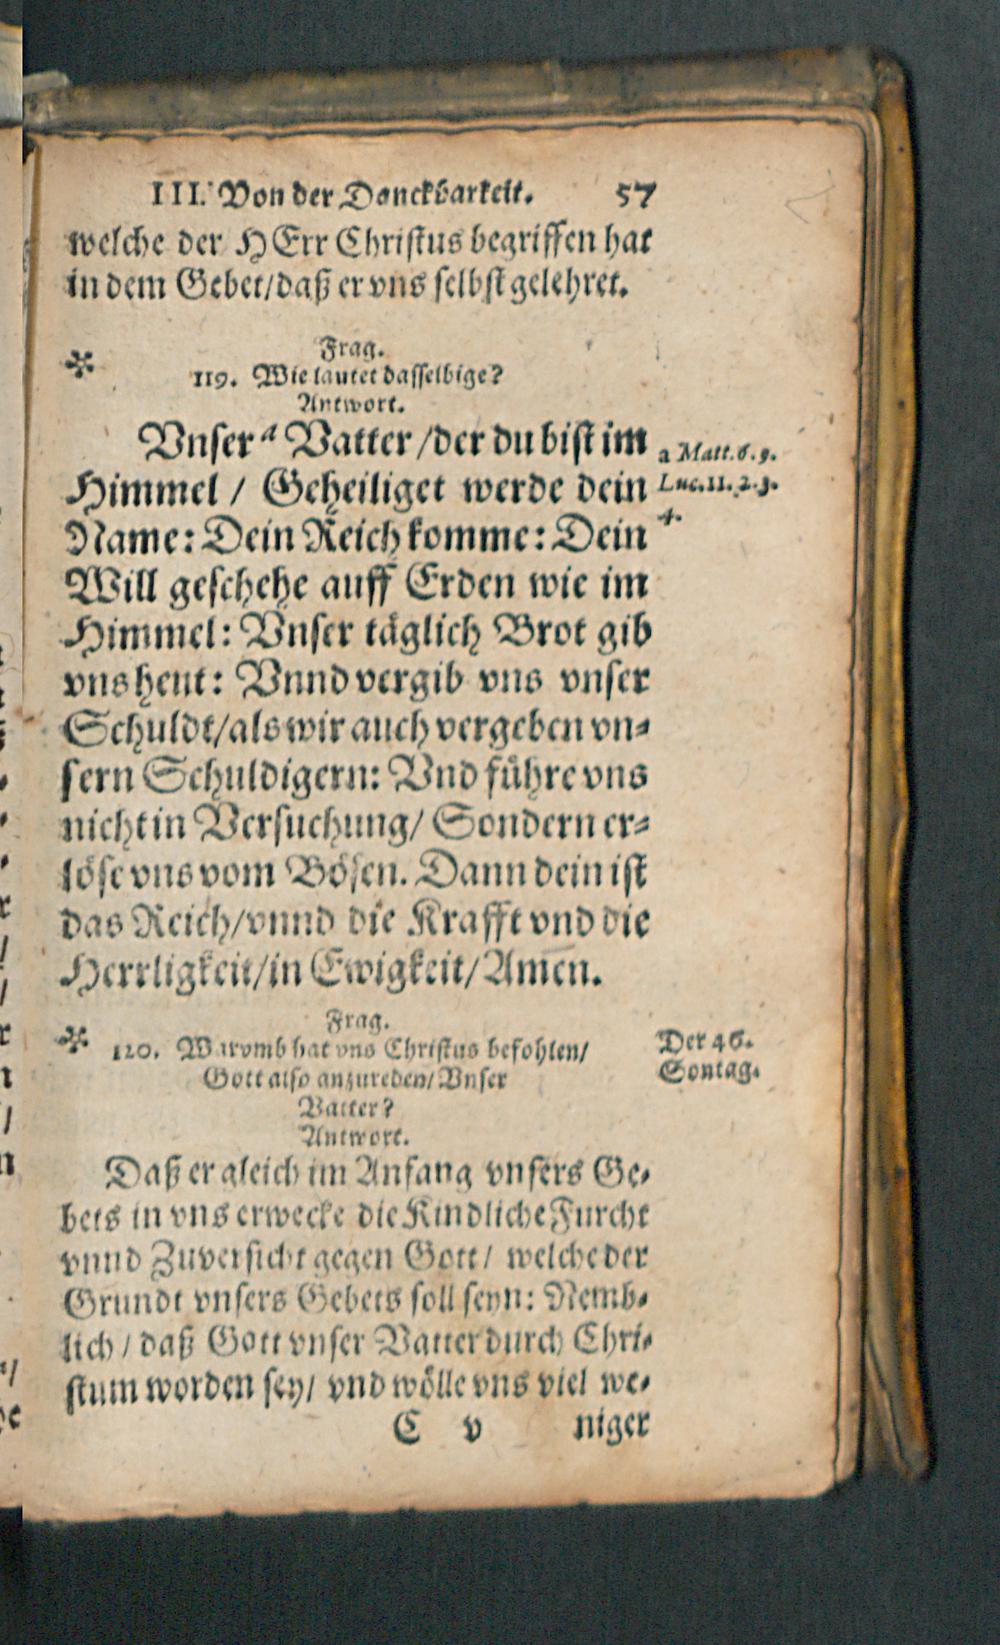 III. Von der Danckbarkeit. 57
welche der HErr Christus begriffen hat
in dem Gebet/daß er vns selbst gelehret.
Frag.
119. Wie lautet dasselbige?
Antwort.
Vnser a Vatter/der du bist im
a Matt. 6. 9.
Himmel / Geheiliget werde dein
Luc. 11. 2. 3.
Name: Dein Reich komme: Dein
4.
Will geschehe auff Erden wie im
Himmel: Vnser täglich Brot gib
vns heut: Vnnd vergib vns vnser
Schuldt/als wir auch vergeben vn⸗
sern Schuldigern: Vnd führe vns
nicht in Versuchung/ Sondern er⸗
löse vns vom Bösen. Dann dein ist
das Reich/vnnd die Krafft vnd die
Herrligkeit/in Ewigkeit/Amen.
Frag.
120. Warvmb hat vns Christus befohlen/
Der 46.
Gott also anzureden/Vnser
Sontag.
Vatter?
Antwort.
Daß er gleich im Anfang vnsers Ge⸗
bets in vns erwecke die Kindliche Furcht
vnnd Zuversicht gegen Gott/ welche der
Grundt vnsers Gebets soll seyn: Nemb⸗
lich/ daß Gott vnser Vatter durch Chri⸗
stum worden sey/ vnd wölle vns viel we⸗
C v niger